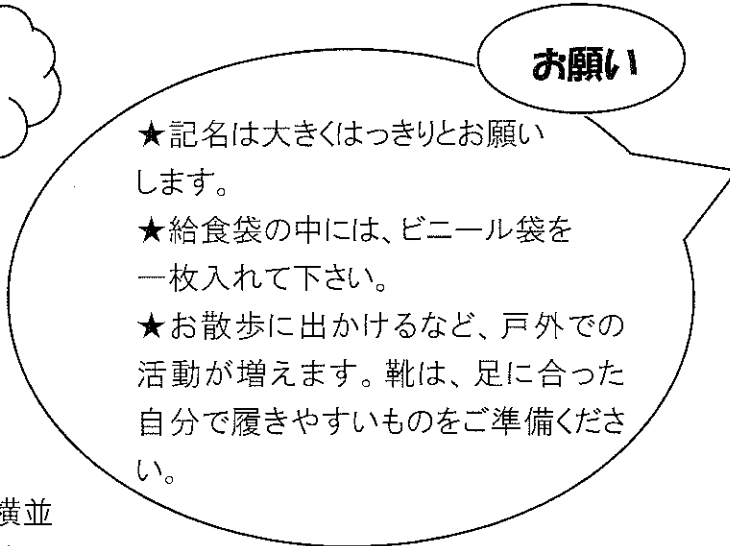 お願い
★記名は大きくはっきりとお願い
します。
★給食袋の中には、ビニール袋を
一枚入れて下さい。
★お散歩に出かけるなど、戸外での
活動が増えます。靴は、足に合った
自分で履きやすいものをご準備くださ
い。
横並